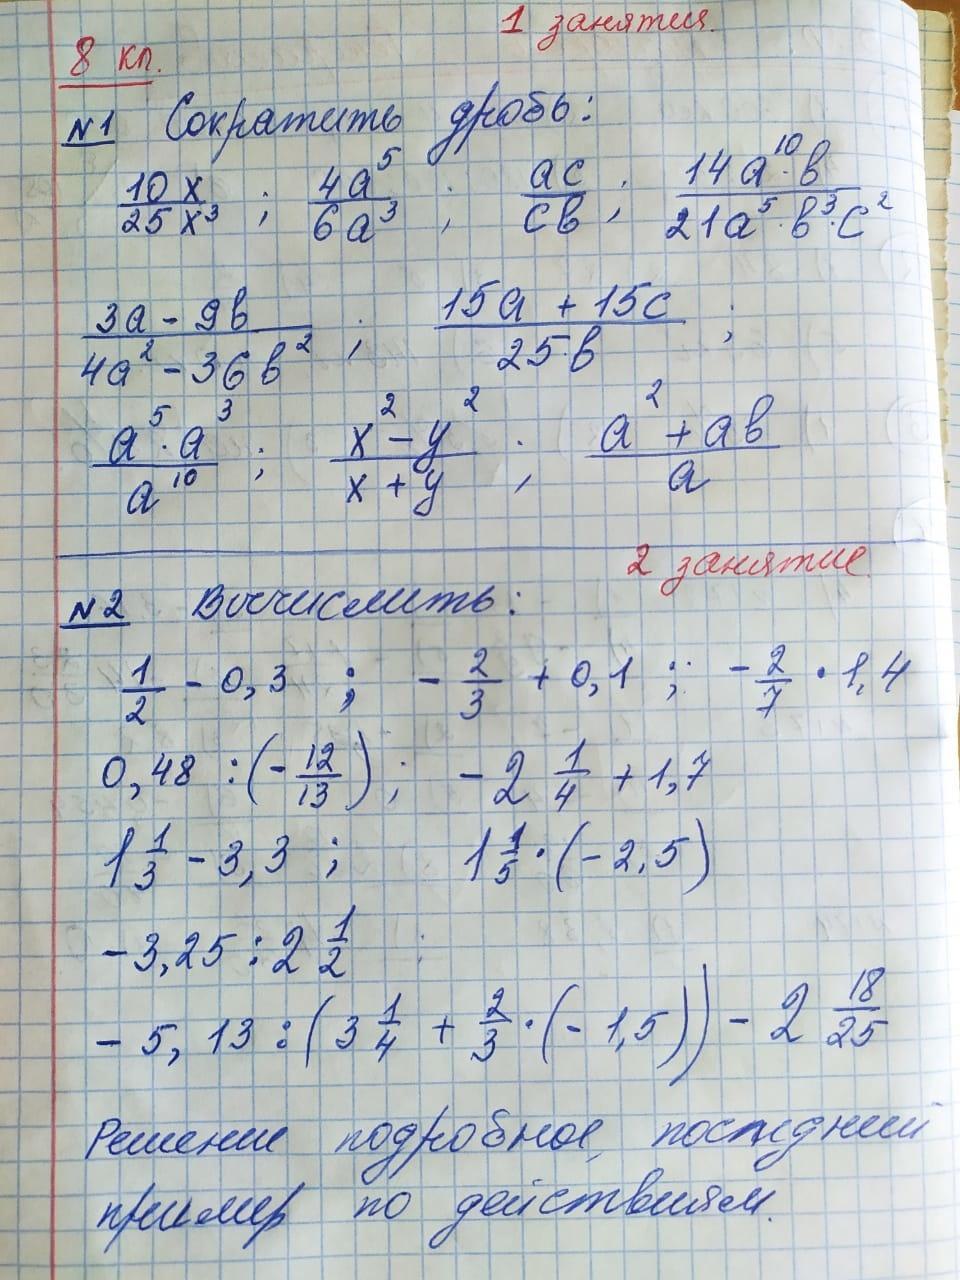 1 занятия.
8 кл.
№1 Сократить дробь:
10x/25x³ ; 4a⁵/6a³ ; ac/cb ; 14a¹⁰·b/21a⁵·b³·c²
3a - 9b/4a² - 36b² ; 15a + 15c/25·b ;
a⁵·a³/a¹⁰ ; x² - y²/x + y ; a² + ab/a
2 занятие.
№2 Вычислить:
1/2 - 0,3 ; - 2/3 + 0,1 ; - 2/7 · 1,4
0,48 : (- 12/13) ; - 2 1/4 + 1,7
1 1/3 - 3,3 ; 1 1/5 · (- 2,5)
- 3,25 : 2 1/2 ;
- 5,13 : (3 1/4 + 2/3 · (- 1,5)) - 2 18/25
Решение подробное, последний
пример по действиям.